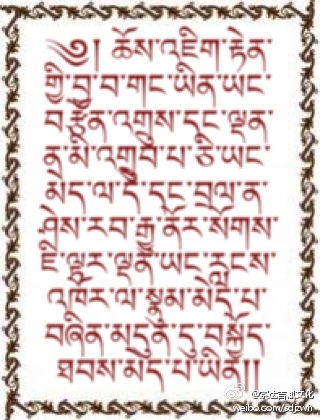 ༄། ཆོས་འཇིག་རྟེན་
གྱི་བྱ་བ་གང་ཡིན་ཡང་
བརྩོན་འགྲུས་དང་ལྡན་
ན་མི་འགྲུབ་པ་ཅི་ཡང་
མེད་ལ་དེ་དང་བྲལ་ན་
ཤེས་རབ་རྒྱུ་ནོར་སོགས་
ཇི་ལྟར་ལྡན་ཡང་རླངས་
འཁོར་ལ་སྣུམ་མེད་པ་
བཞིན་མདུན་དུ་བསྐྱོད་
ཐབས་མེད་པ་ཡིན།།
weibo.com/cdjzwh